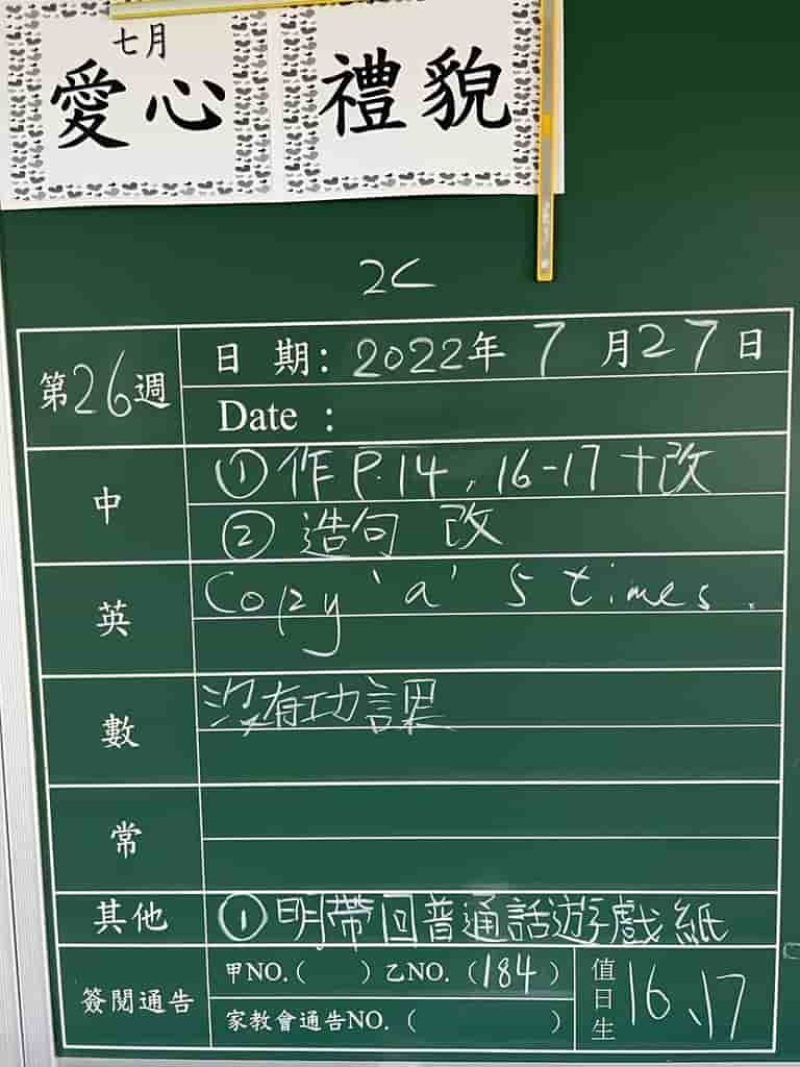 七月
愛心 禮貌
2C
第26週 日期：2022年7月27日
Date：
中 ①作P.14，16-17十改
②造句 改
英 Copy 'a' 5 times.
數 沒有功課
常
其他 ①明帶回普通話遊戲紙
簽閱通告 甲NO.（ ）乙NO.（184）
家教會通告NO.（ ）
值日生 16、17